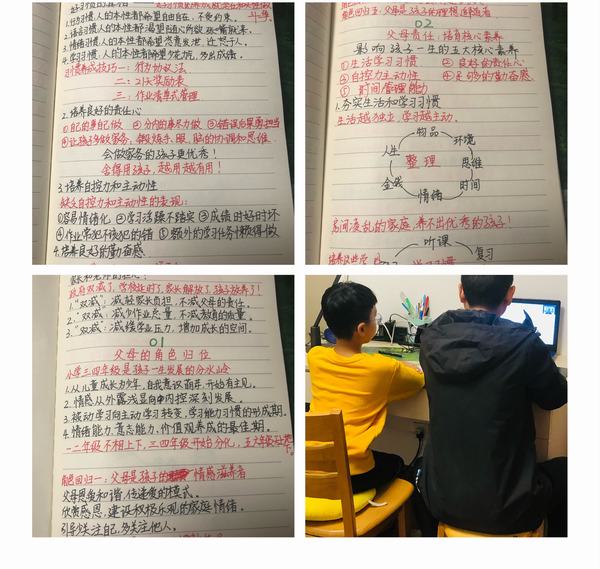 1. 行为习惯：人的本性都希望自由自在，不受约束。
2. 语言习惯：人的本性都渴望随心所欲，张嘴就来。
3. 情绪习惯：人的本性都希望
4. 学习习惯：人的本性都希望少花时间，多出成绩。
习惯养成技巧一：行为协议法
二：21天奖励表
三：作业清单式管理
2. 培养良好的责任心
①自己的事自己做 ②分内的事尽力做 ③错误后果勇担当
④让孩子多做家务，锻炼手、眼、脑的协调和思维
会做家务的孩子更优秀！
舍得用孩子，越用越有用！
3. 培养自控力和主动性
缺乏自控力和主动性的表现：
①容易情绪化 ②学习活跃不踏实 ③成绩时好时坏
④作业常犯不该犯的错 ⑤额外的学习任务懒得做
4. 培养良好的勤奋感
02
父母责任：培育核心素养
影响孩子一生的五大核心素养
①生活学习习惯 ②良好的责任心
③自控力主动性 ④足够的勤奋感
⑤时间管理能力
1. 夯实生活和学习习惯
生活越独立，学习越主动。
物品
人生 环境
整理
思维
金钱 时间
情绪
房间凌乱的家庭，养不出优秀的孩子！
听课
复习
政府双减了，学校延时了，家长解放了，孩子放养了！
1. “双减”：减轻家长负担，不减父母的责任。
2. “双减”：减少作业总量，不减教育的质量。
3. “双减”：减缓学业压力，增加成长的空间。
01
父母的角色归位
小学三四年级是孩子一生发展的分水岭
1. 从儿童成长为少年，自我意识萌芽，开始有主见。
2. 情感从外露浅显向内控深刻发展。
3. 被动学习向主动学习转变，学习能力习惯的形成期。
4. 情绪能力、意志能力，价值观养成的最佳期。
一二年级不相上下，三四年级开始分化，五六年级
角色回归一：父母是孩子的情感滋养者
父母恩爱和谐，传递爱的模式。
欣赏感恩，建设积极乐观的家庭情绪。
引导关注自己，多关注他人。